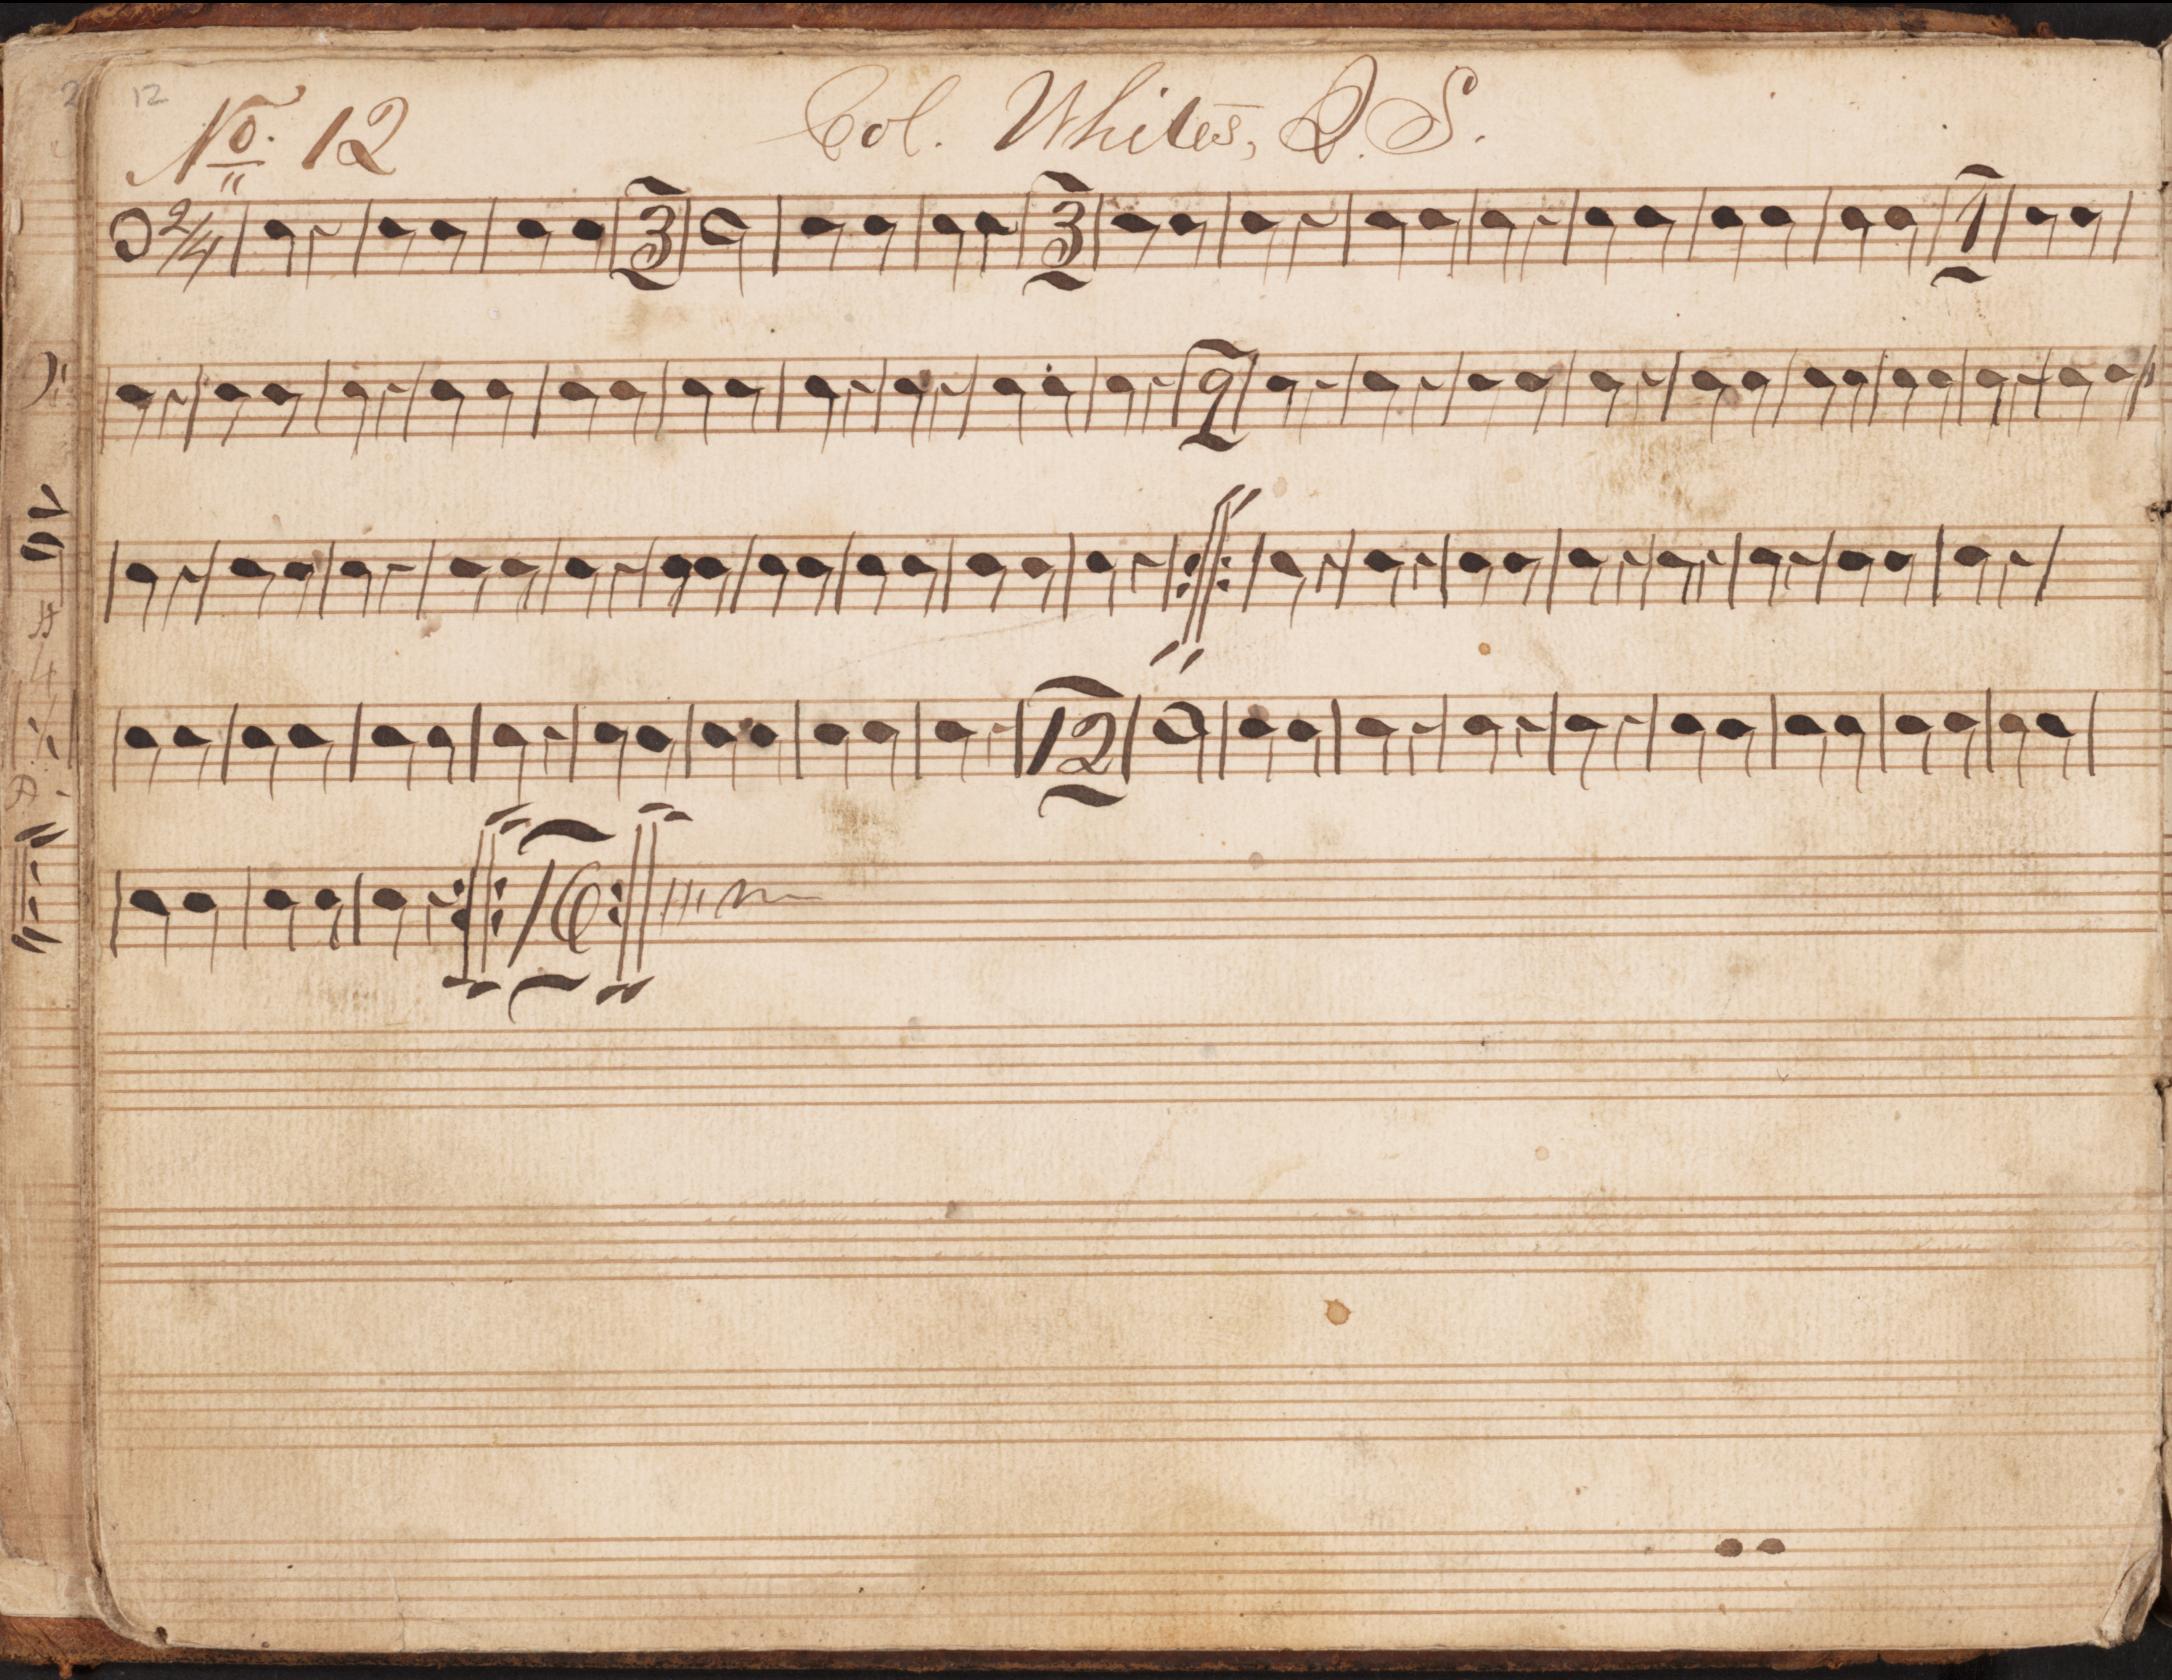 12
No. 12
Col. Whites, Q. S.
2/4 3 3 1
2
12
16